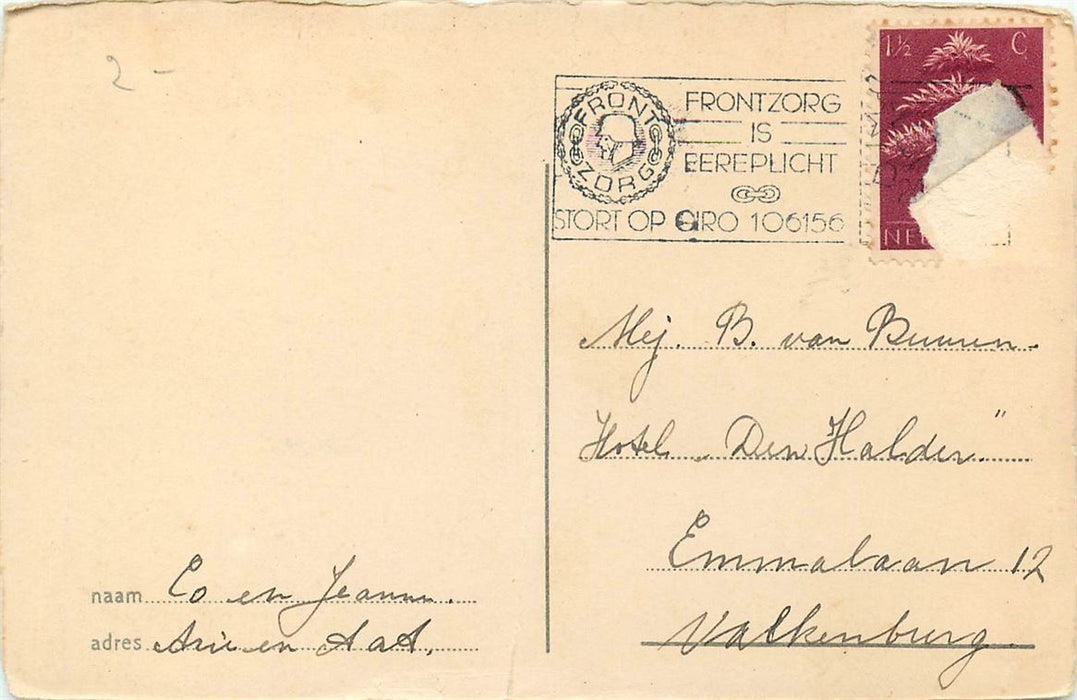 2 -
1½ C
FRONT
ZORG
FRONTZORG
IS
EEREPLICHT
STORT OP GIRO 106156
NE
Mej. B. van Buuren.
Hotel „Den Halder"
Emmalaan 12
Valkenburg.
naam Co en Jeanne.
adres Arie en AaA.